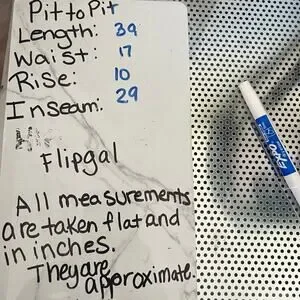 Pit to Pit
Length: 39
Waist: 17
Rise: 10
Inseam: 29
Flipgal
All measurements
are taken flat and
in inches.
They are
approximate.
EXPO